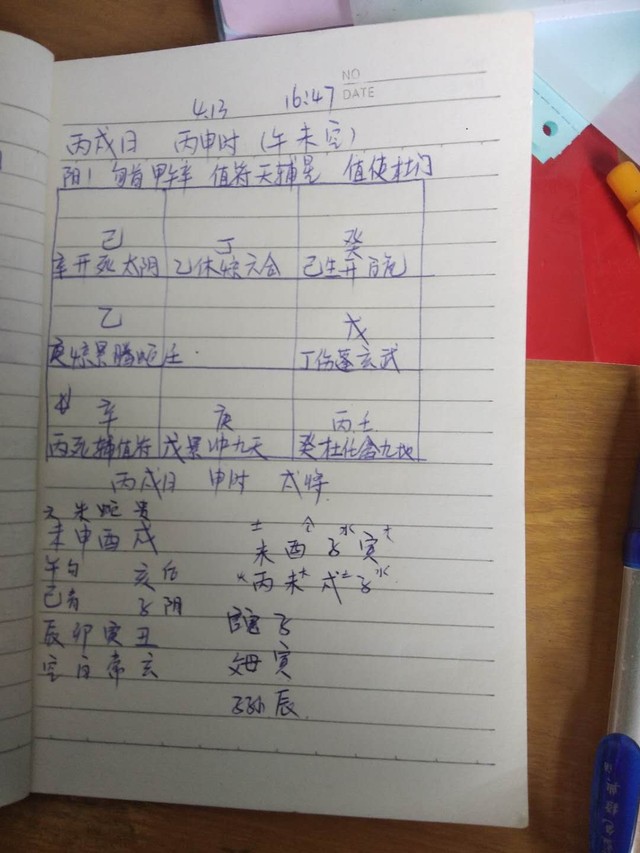 NO
4.13 16:47 DATE
丙戌日 丙申时 (午未空)
阳1 旬首甲午辛 值符天辅星 值使杜门
己 丁 癸
辛开死太阴 乙休惊六合 己生开白虎
乙 戊
庚惊景腾蛇壬 丁伤蓬玄武
辛 庚 丙壬
丙死辅值符 戊景冲九天 癸杜任禽九地
丙戌日 申时 戌将
六朱蛇贵
未申酉戌 土 水 土
午勾 亥后 未酉子寅
巳青 子阴 火丙未土戌土子水
辰卯寅丑 官鬼子
空白常玄 父母寅
子孙辰